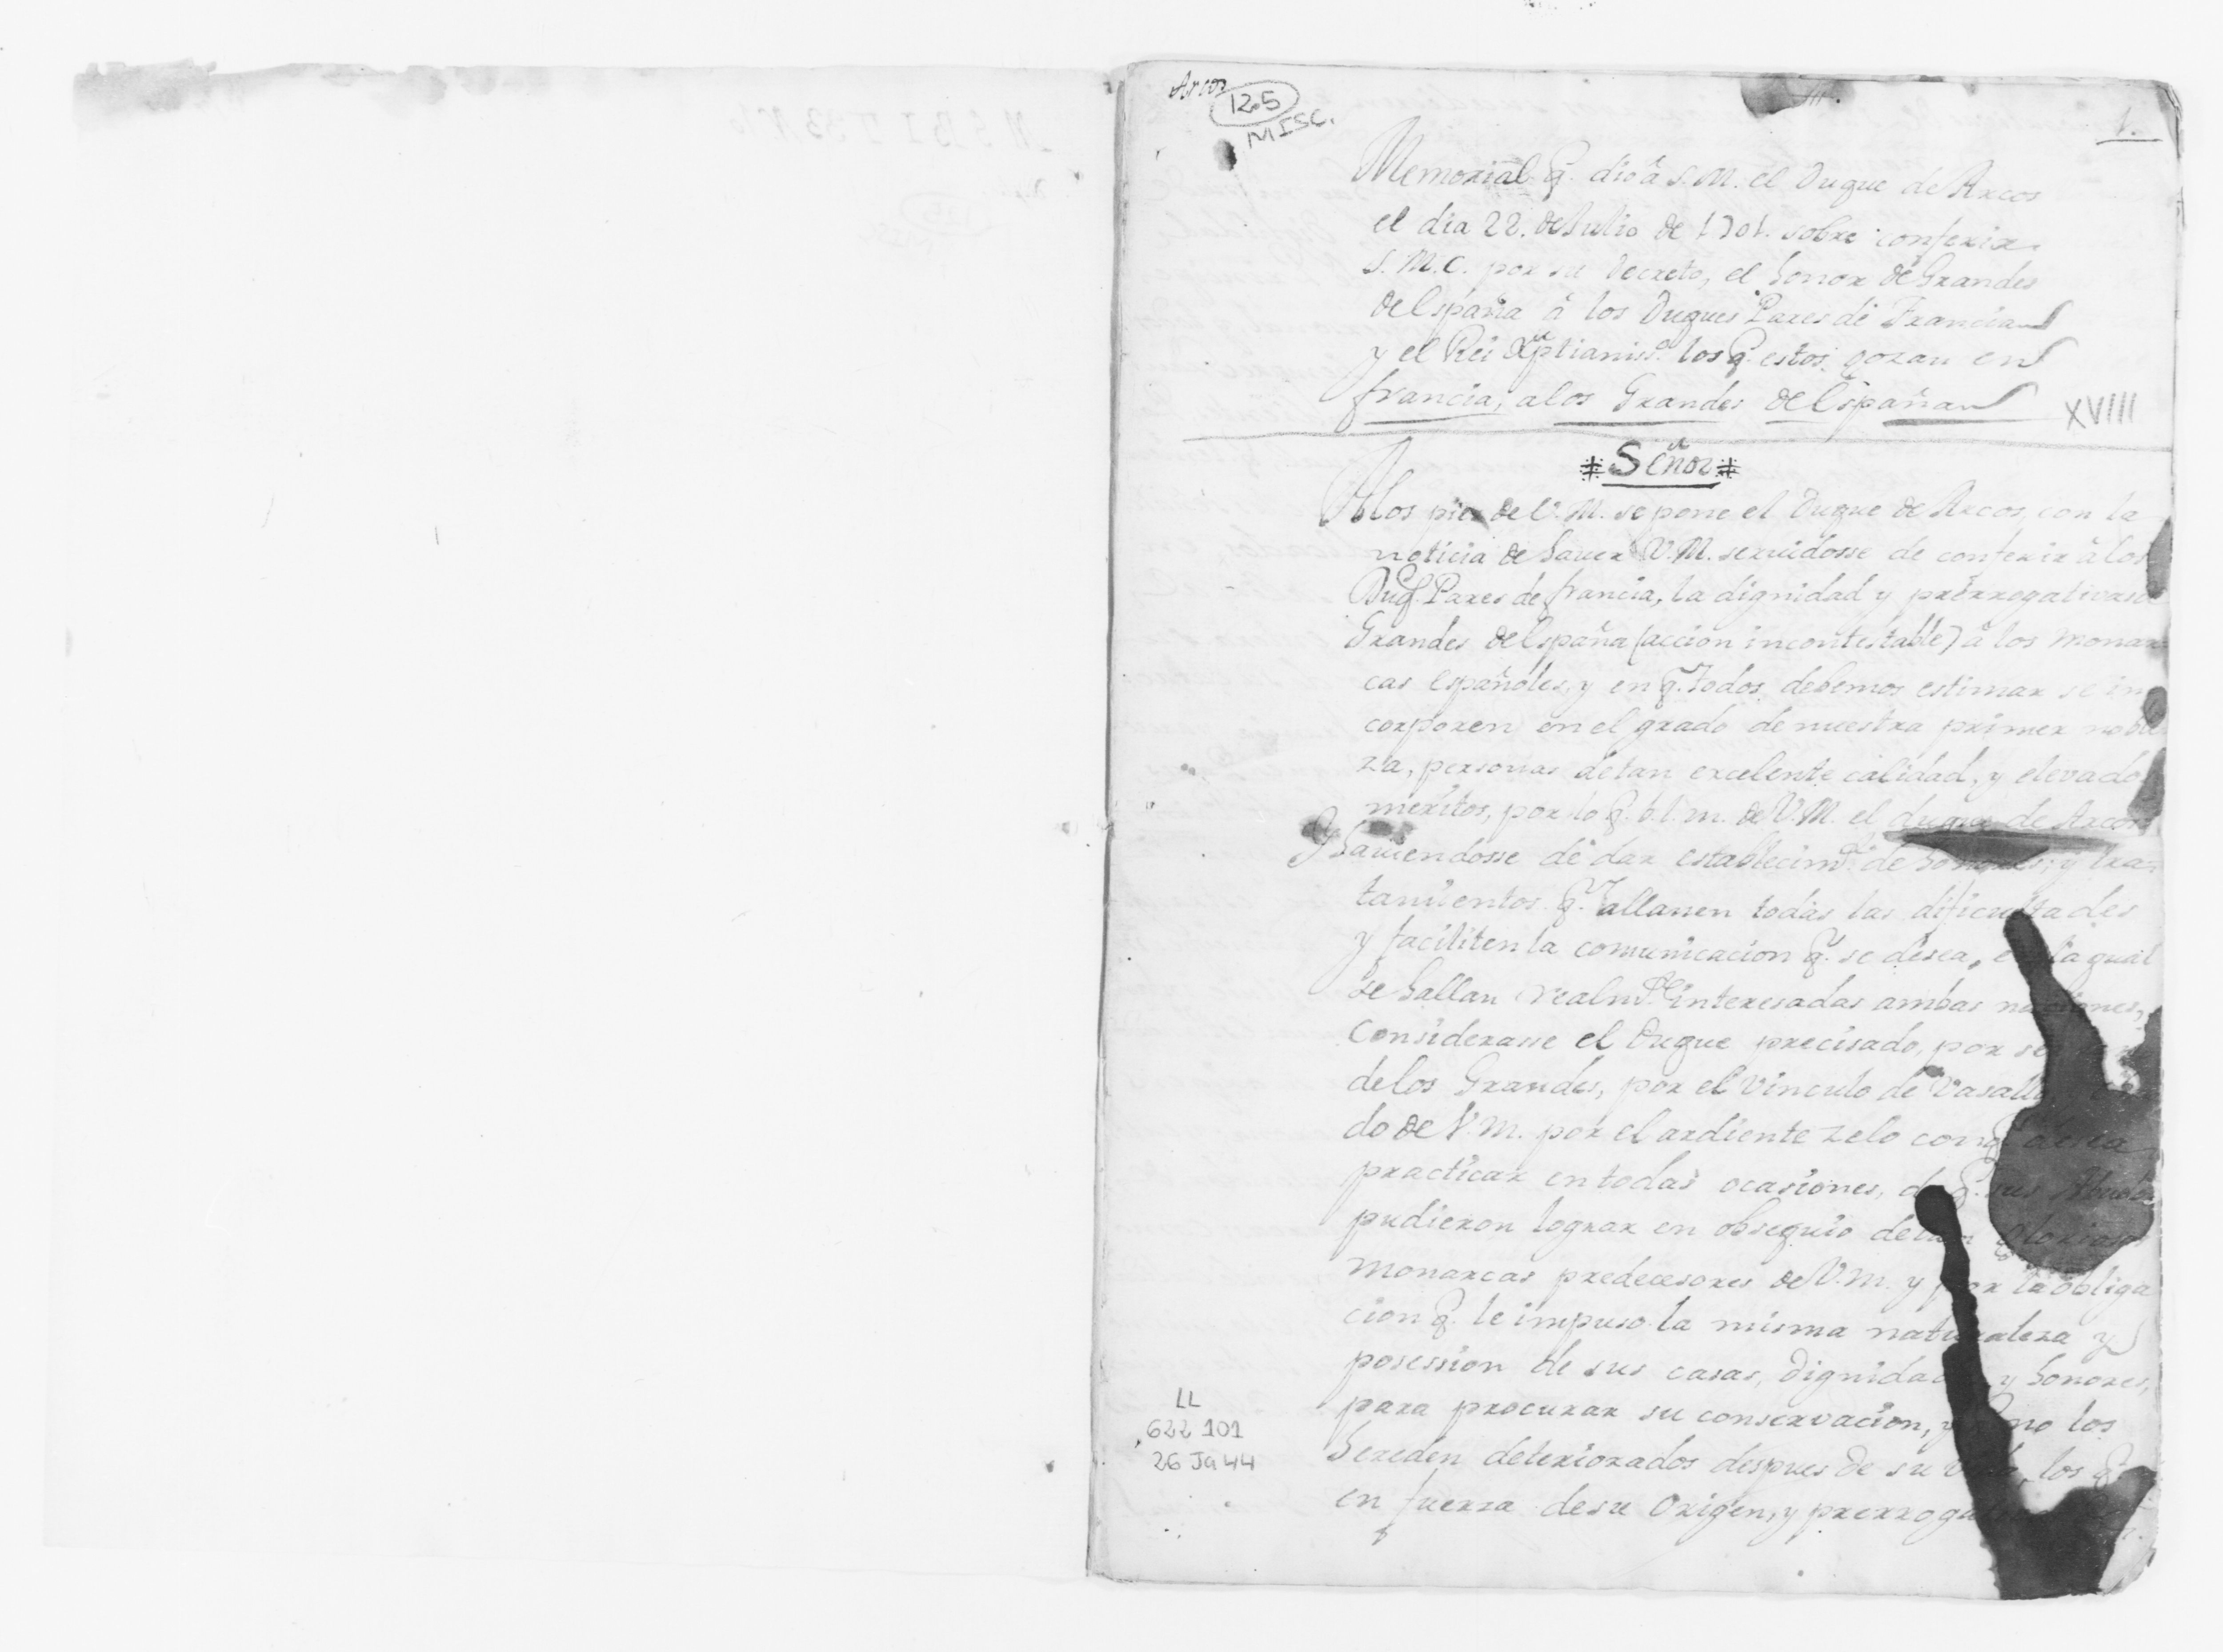 Arcos
125
MISC.
1.
Memorial q. dio â S.M. el Duque de Arcos
el dia 22. de Julio de 1701. sobre conferir
S.M.C. por su Decreto, el honor de Grandes
de España â los Duques Pares de Francia
y el Rei Xptianiss.o los q. estos gozan en
francia, alos Grandes de España
XVIII
Señor
Alos pies de V.M. se pone el Duque de Arcos, con la
noticia de haver V.M. servidosse de conferir â los
Duq.s Pares de francia, la dignidad y prerrogativas
Grandes de España (accion incontestable) â los monar=
cas españoles, y en q. todos debemos estimar se in
corporen en el grado de nuestra primer noble
za, personas de tan excelente calidad, y elevados
meritos, por lo q. b.l.m. de V.M. el duque de Arcos
Y haviendosse de dar establecim.to de honores, y tra=
tamientos q. allanen todas las dificultades
y faciliten la comunicacion q. se desea, en la qual
se hallan realm.te interesadas ambas naciones,
Considerasse el Duque precisado, por se
delos Grandes, por el vinculo de Vasallo
do de V.M. por el ardiente zelo con q. desea
practicar en todas ocasiones, de q. sus Abuelos
pudieron lograr en obsequio de los gloriosos
Monarcas predecesores de V.M. y por la obliga
cion q. le impuso la misma naturaleza y
posession de sus casas, Dignidad y honores,
para procurar su conservacion, y q. no los
hereden deteriorados despues de su vida, los q.
en fuerza de su Origen, y prerroga
LL
622 101
26 Ja 44